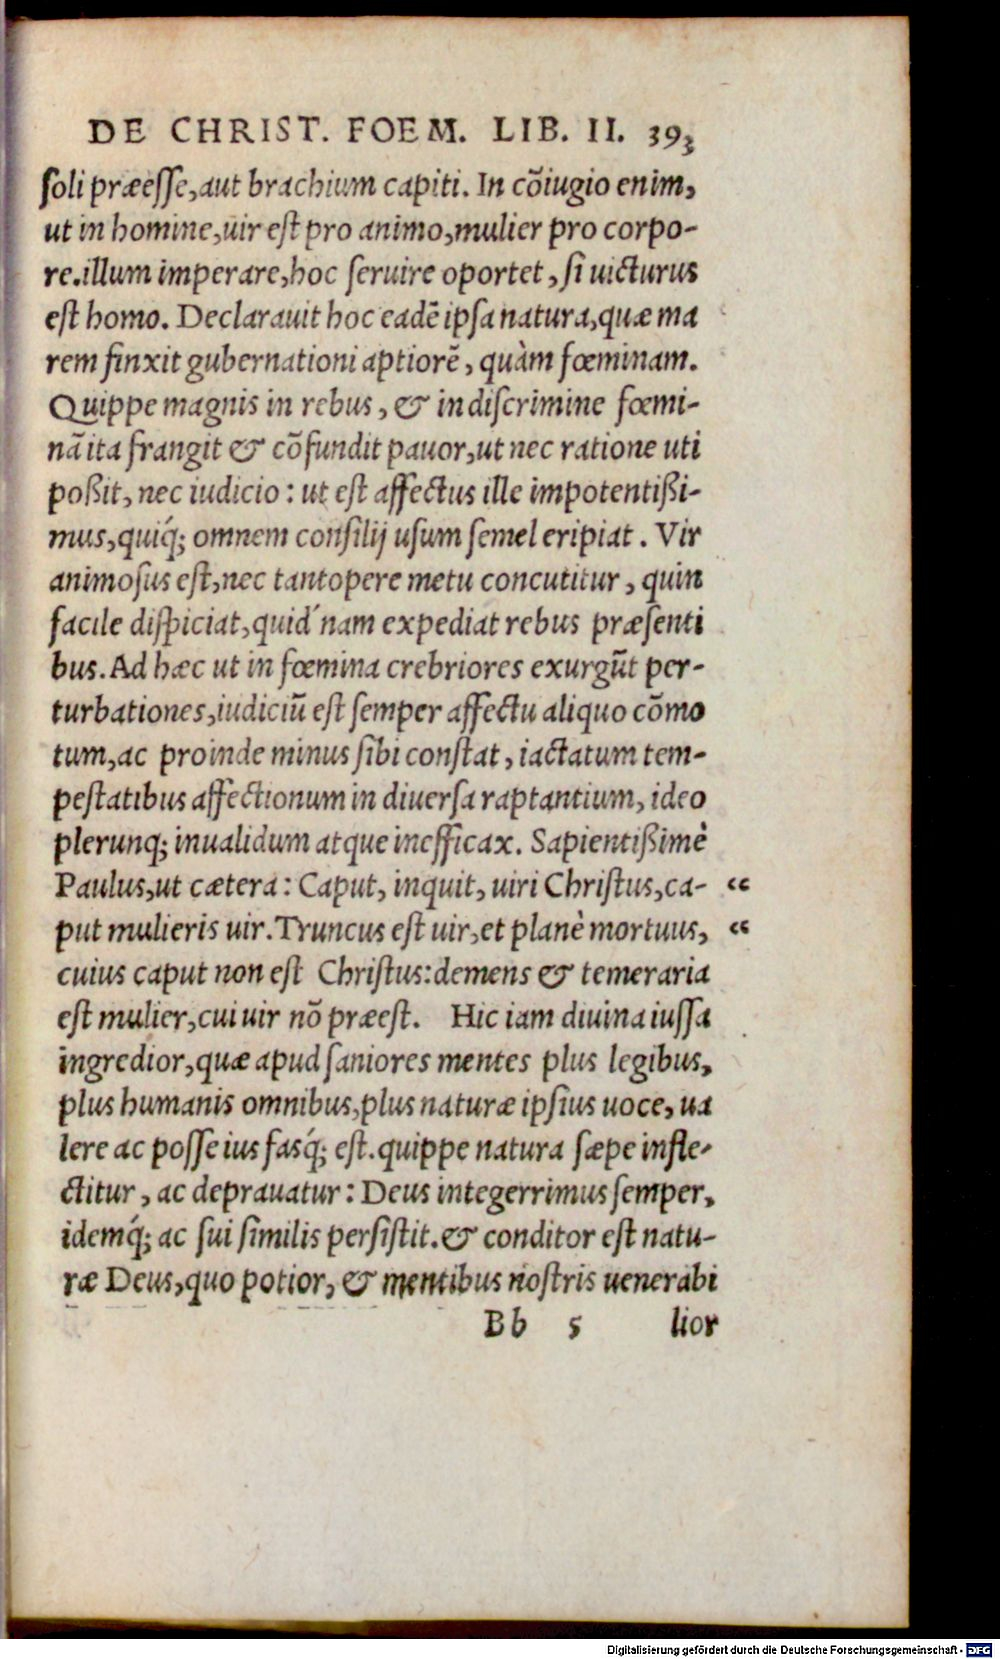 DE CHRIST. FOEM. LIB. II. 393
soli præesse, aut brachium capiti. In cõiugio enim,
ut in homine, uir est pro animo, mulier pro corpo-
re. illum imperare, hoc seruire oportet, si uicturus
est homo. Declarauit hoc eadẽ ipsa natura, quæ ma
rem finxit gubernationi aptiorẽ, quàm fœminam.
Quippe magnis in rebus, & in discrimine fœmi-
nã ita frangit & cõfundit pauor, ut nec ratione uti
poßit, nec iudicio: ut est affectus ille impotentißi-
mus, quiq́; omnem consilij usum semel eripiat. Vir
animosus est, nec tantopere metu concutitur, quin
facile dispiciat, quid´nam expediat rebus præsenti
bus. Ad hæc ut in fœmina crebriores exurgũt per-
turbationes, iudiciũ est semper affectu aliquo cõmo
tum, ac proinde minus sibi constat, iactatum tem-
pestatibus affectionum in diuersa raptantium, ideo
plerunq; inualidum atque inefficax. Sapientißimè
Paulus, ut cætera: Caput, inquit, uiri Christus, ca- “
put mulieris uir. Truncus est uir, et planè mortuus, “
cuius caput non est Christus: demens & temeraria
est mulier, cui uir nõ præest. Hic iam diuina iussa
ingredior, quæ apud saniores mentes plus legibus,
plus humanis omnibus, plus naturæ ipsius uoce, ua
lere ac posse ius fasq́; est. quippe natura sæpe infle-
ctitur, ac deprauatur: Deus integerrimus semper,
idemq́; ac sui similis persistit. & conditor est natu-
ræ Deus, quo potior, & mentibus nostris uenerabi
Bb 5 lior
Digitalisierung gefördert durch die Deutsche Forschungsgemeinschaft - DFG